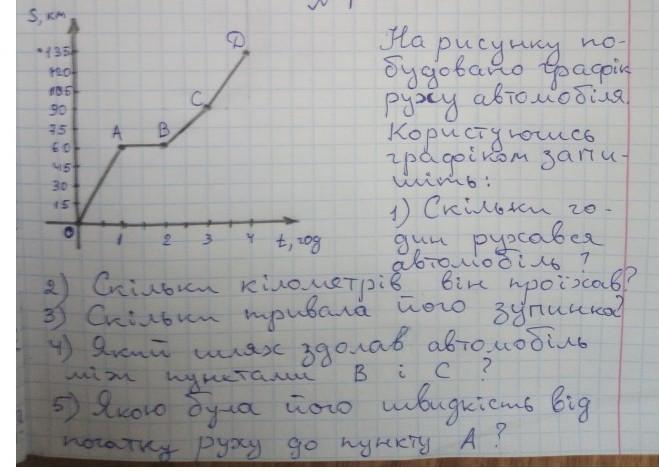 N 1
S, км
135
120
105
90
75
60
45
30
15
0
1 2 3 4 t, год
A
B
C
D
На рисунку по-
будовано графік
руху автомобіля.
Користуючись
графіком запи-
шіть:
1) Скільки го-
дин рухався
автомобіль?
2) Скільки кілометрів він проїхав?
3) Скільки тривала його зупинка?
4) Який шлях здолав автомобіль
між пунктами В і С ?
5) Якою була його швидкість від
початку руху до пункту А ?